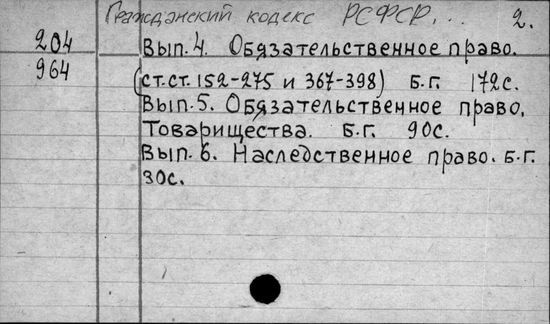 Гражданский кодекс РСФСР... 2.
204 Вып. 4. Обязательственное право.
964 (ст.ст. 152-275 и 367-398) Б.г. 172с.
Вып. 5. Обязательственное право.
Товарищества. Б.г. 90с.
Вып. 6. Наследственное право. Б.г.
30с.